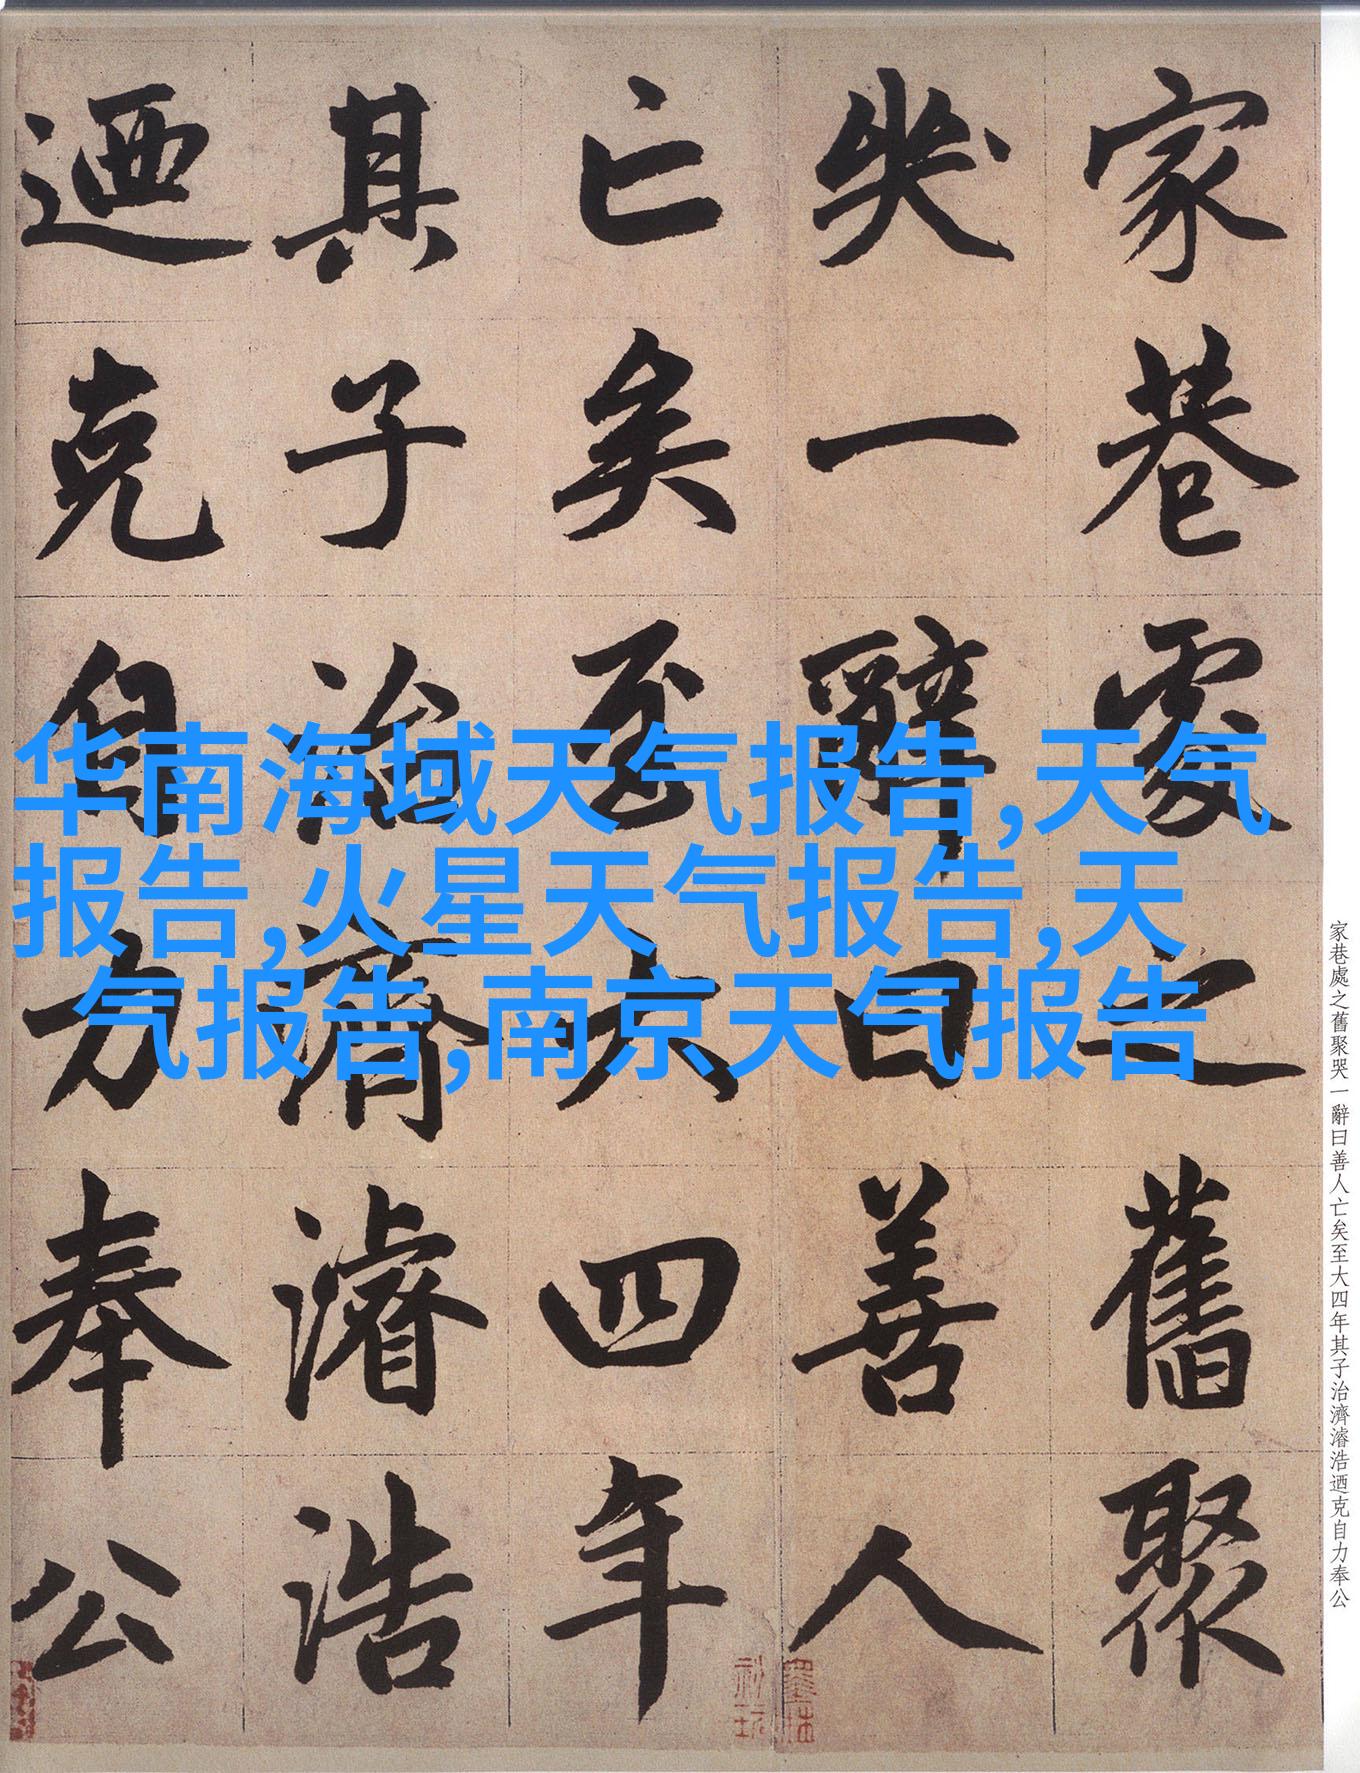 家巷處之舊聚
哭一辭曰善人
亡矣至大四年
其子治濟濬浩
迺克自力奉公
华南海域天气报告,天气
报告,火星天气报告,天
气报告,南京天气报告
家巷處之舊聚哭一辭曰善人亡矣至大四年其子治濟濬浩迺克自力奉公
墨林
秘玩